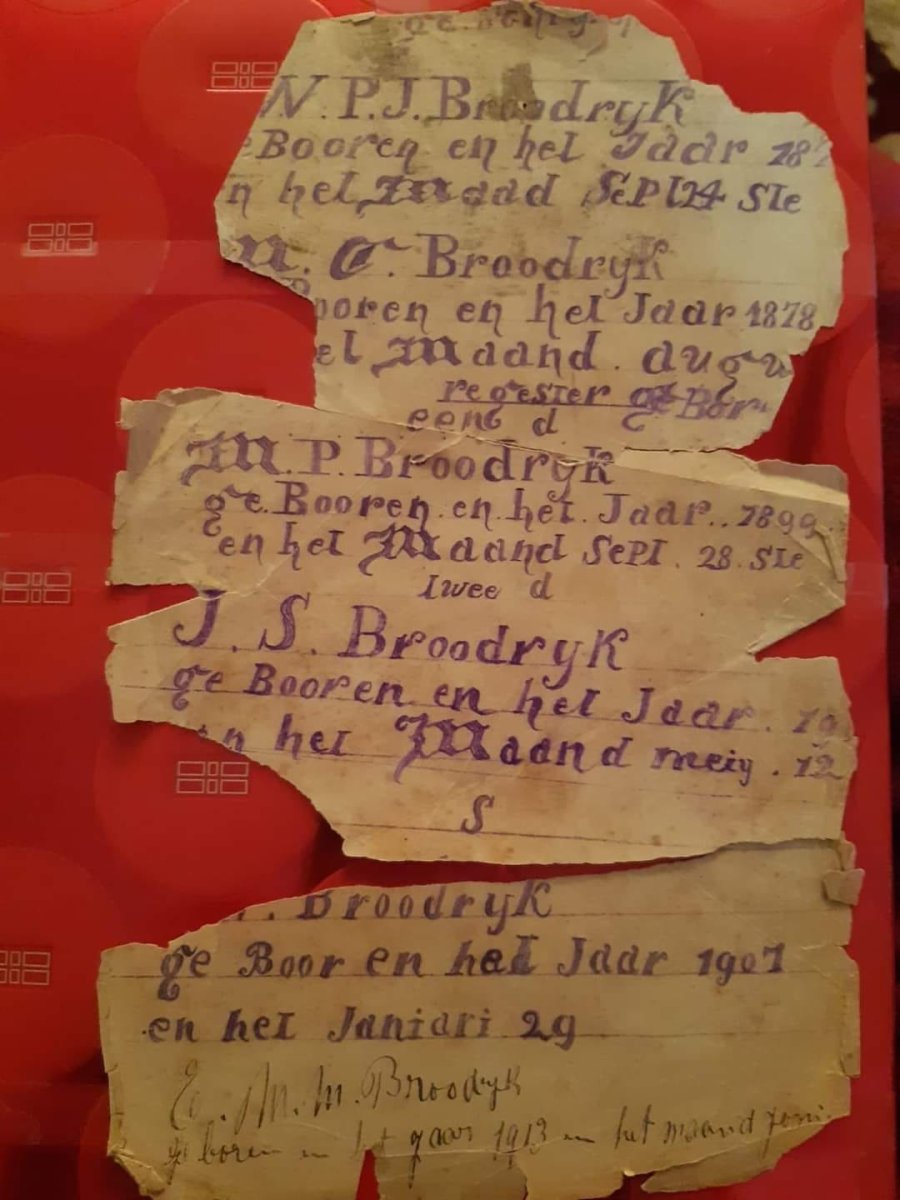 W.P.J. Broodryk
Booren en het Jaar 187
n het Maad Sept 24 Ste
C. Broodryk
Booren en het Jaar 1878
et Maand. augu
regester ge Bor
eend d
M.P. Broodryk
ge.Booren.en.het.Jaar..1899.
en het Maand Sept. 28. Ste
twee d
J.S. Broodryk
ge Booren en het Jaar. 19
n het Maand meiy. 12
S
Broodryk
ge Boor en het Jaar 1901
en het Janiari 29
M.M. Broodryk
geboren in het jaar 1913 in het maand